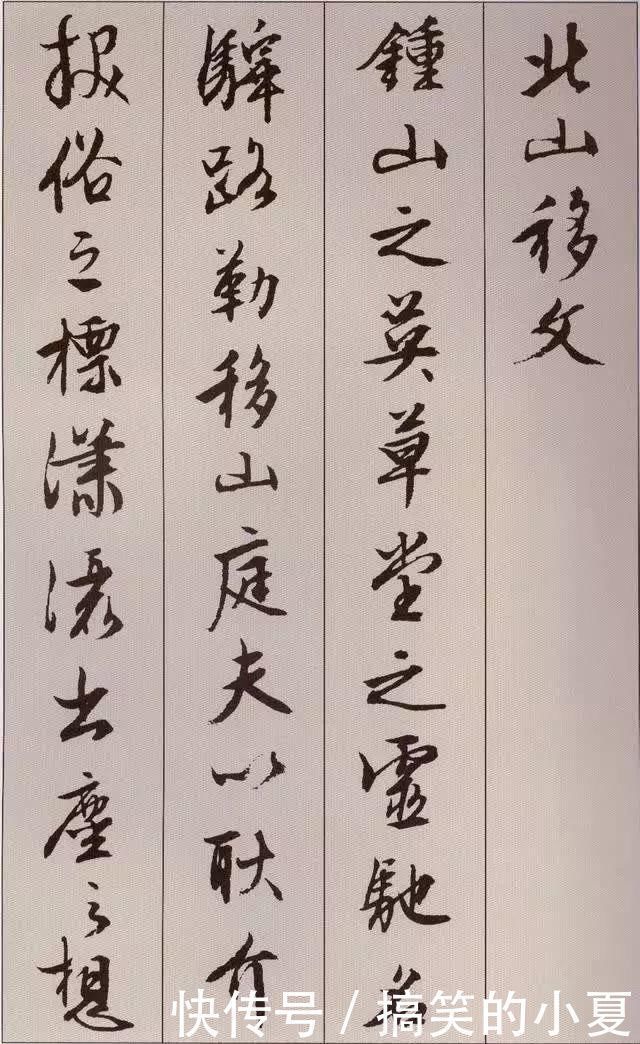 北山移文
鍾山之英草堂之靈馳
驛路勒移山庭夫以耿介
拔俗之標瀟灑出塵之想
快传号 / 搞笑的小夏